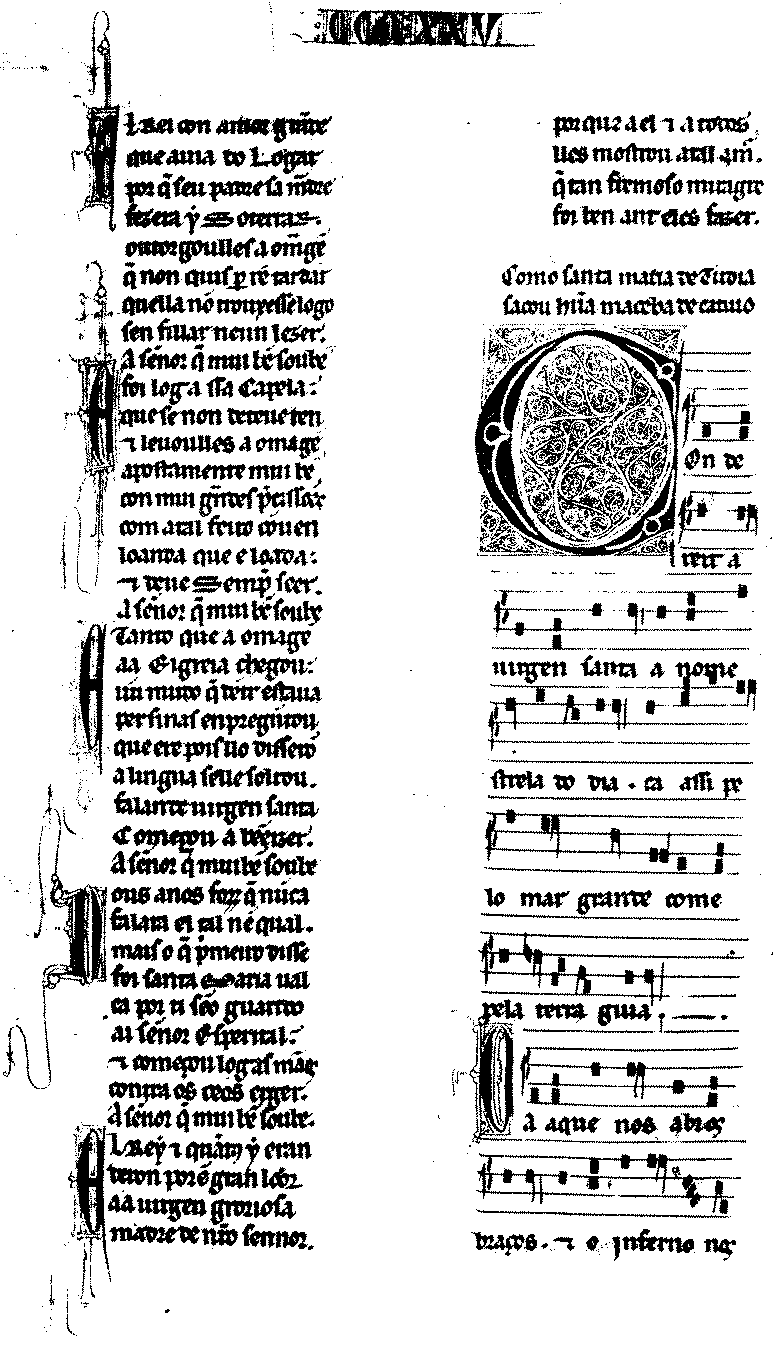 CCCXXV
El Rei con amor grãde
que auia do Logar
por q̃ seu padre sa mãdre
fezera ẏ Soterrar.
outorgoulles a omagẽ
q̃ non quis ꝑ rẽ tardar
quella nõ trouxesse logo
sen fillar neun lezer.
A sẽnor q̃ mui bẽ soube
foi log a ssa Capela:
que se non deteue ren
⁊ leuoulles a omagẽ
apostamente mui bẽ
con mui grãdes p̃cissões
com atal feito conuen
loando que e loada:
⁊ deue Sempr̃ seer.
A sẽnor q̃ mui bẽ soube
Tanto que a omagẽ
aa Eigreia chegou:
un mudo q̃ deir estaua
per sinas enpregũtou
que ere poisllo disserõ
a lingua selle soltou.
falando uirgen santa
Começou a bẽeizer.
A sẽnor q̃ mui bẽ soube
Dous anos fezz q̃ nũca
falara el tal né qual.
mais o q̃ p̃meiro disse
foi santa Maria ual
ca por ti sẽo guarido
ai sẽnor Esperital:
⁊ começou log as mãos
contra os ceos erger.
A sẽnor q̃ mui bẽ soube.
El Rey ⁊ quãtos ẏ eran
deron porẽ gran loor
aa uirgen groriosa
madre de nr̃o sennor.
porque a el ⁊ a todos
lles mostrou atal am̃.
q̃ tan fremoso miragre
foi ben ant eles fazer.
Como santa maria de Tudia
sacou hũa manceba de catiuo
Con de
reit a
uirgen santa a nome
strela do dia . ca assi pe
lo mar grande come
pela terra guia .
Ca aque nos abrez
braços . ⁊ o jnferno nos